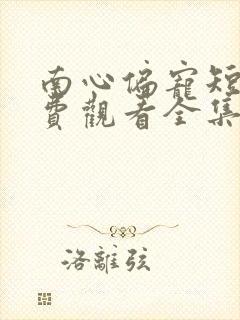 南心偏寵短
費觀看全集
洛離弦